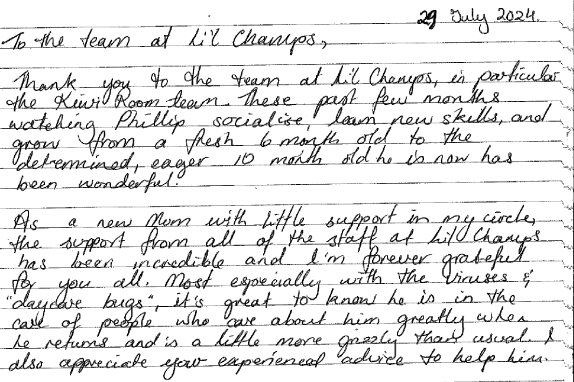 29 July 2024.
To the team at Li'l Champs,
Thank you to the team at Li'l Champs, in particular
the Kiwi Room team. These past few months
watching Phillip socialise, learn new skills, and
grow from a fresh 6 month old to the
determined, eager 10 month old he is now has
been wonderful.
As a new Mom with little support in my circle,
the support from all of the staff at Lil Champs
has been incredible and I'm forever grateful
for you all. Most especially with the viruses &
"daycare bugs", it's great to know he is in the
care of people who care about him greatly when
he returns and is a little more grizzly than usual. I
also appreciate your experienced advice to help him.